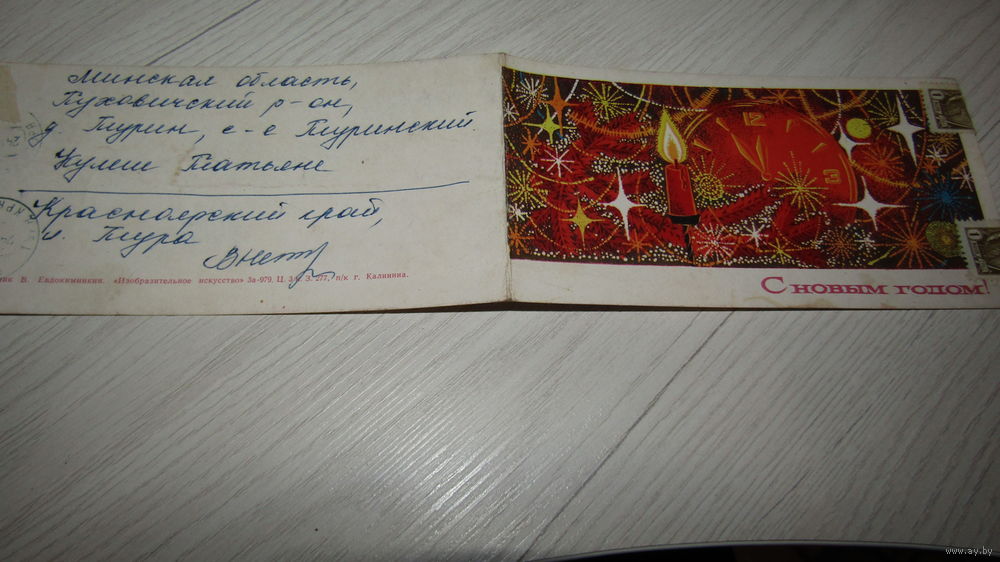 Минская область,
Пуховичский р-он,
д. Турин, с-с Туринский.
Кулеш Татьяне
Красноярский край,
п. Тура
В. Евдокимихин. «Изобразительное искусство» За-979. Ц. 3 к. З. 277, п/к г. Калинина.
12
3
С НОВЫМ ГОДОМ!
www.ay.by